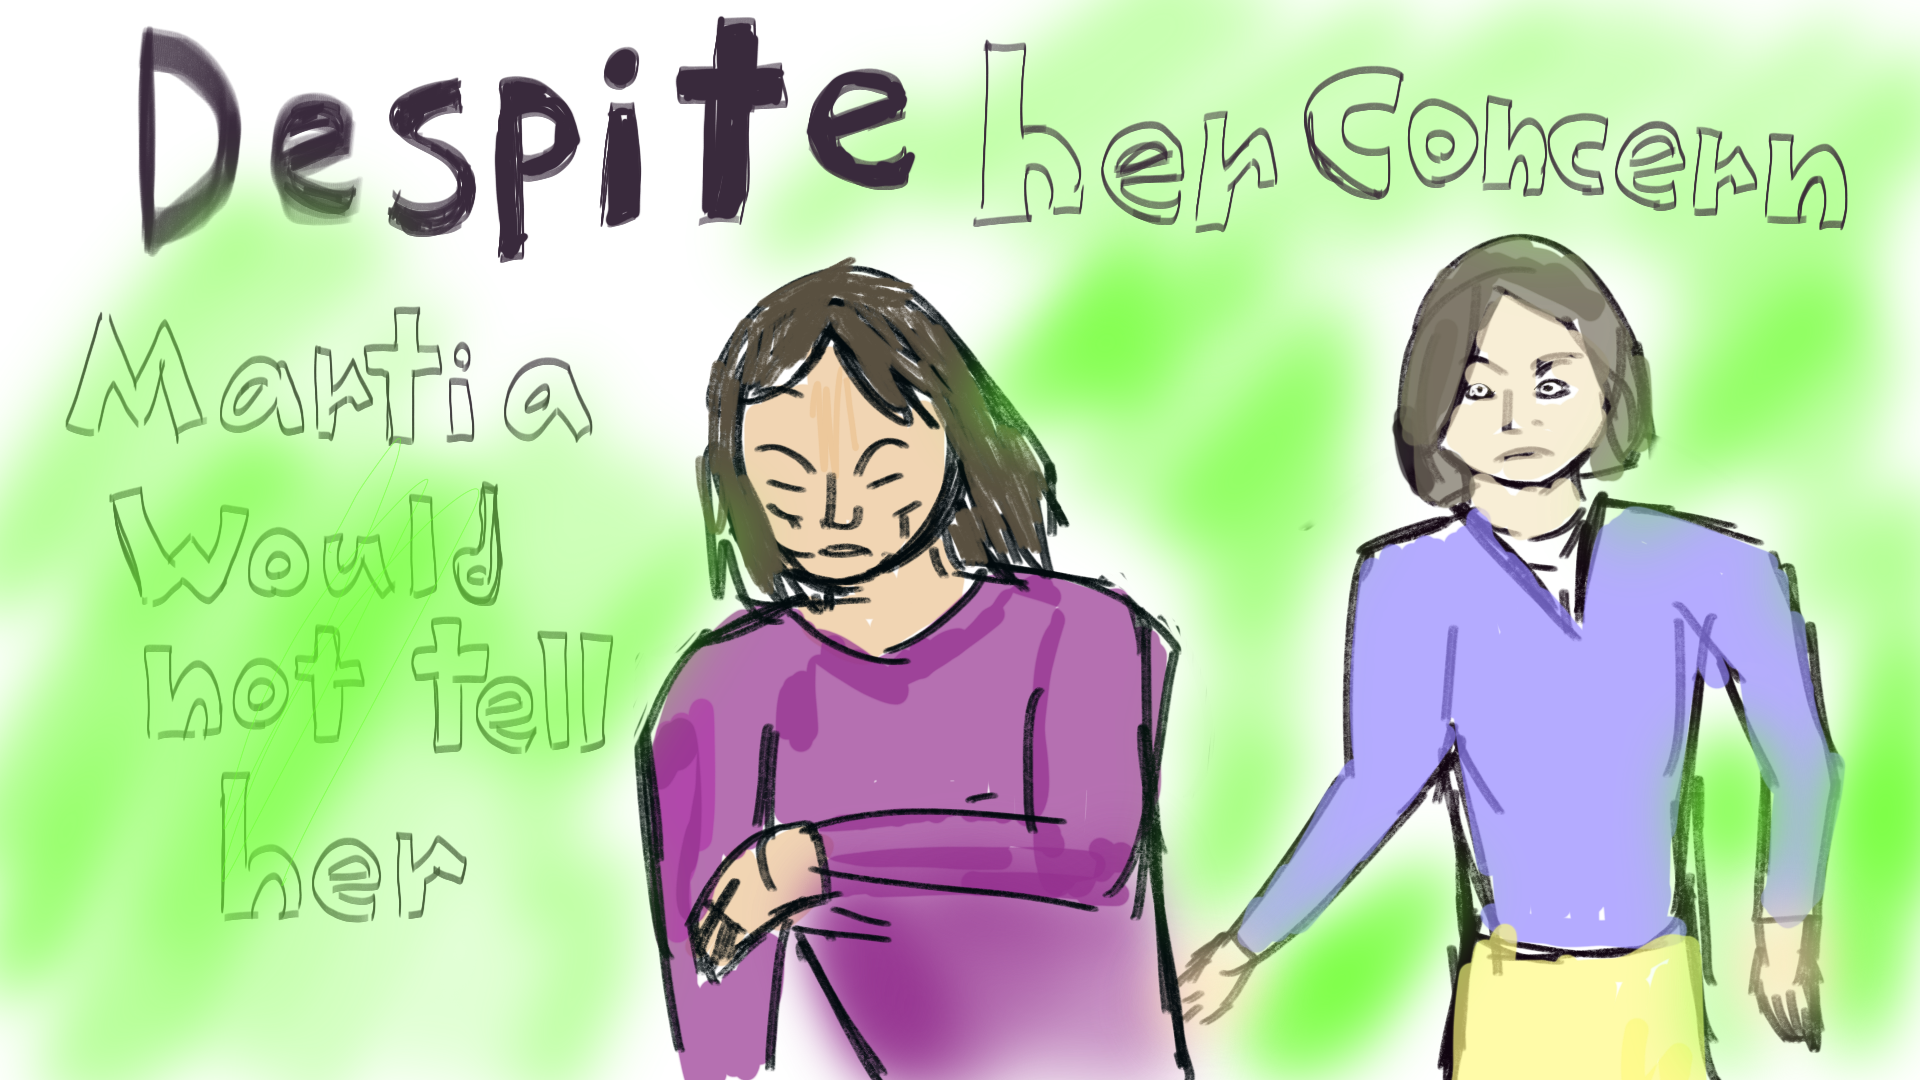 Despite her Concern
Martia
Would
not tell
her